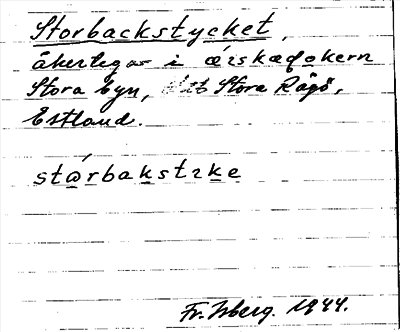 Storbackstycket,
åkertegar i æ̀ɪskædọkern
Stora byn, Stora Rågö,
Estland.
stárbakstɪke
Fr. Isberg. 1944.